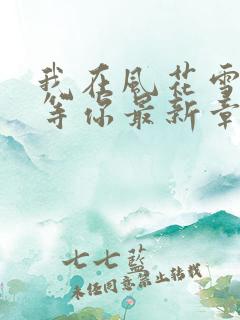 我在风花雪
等你最新章
七七蓝
未经同意禁止转载